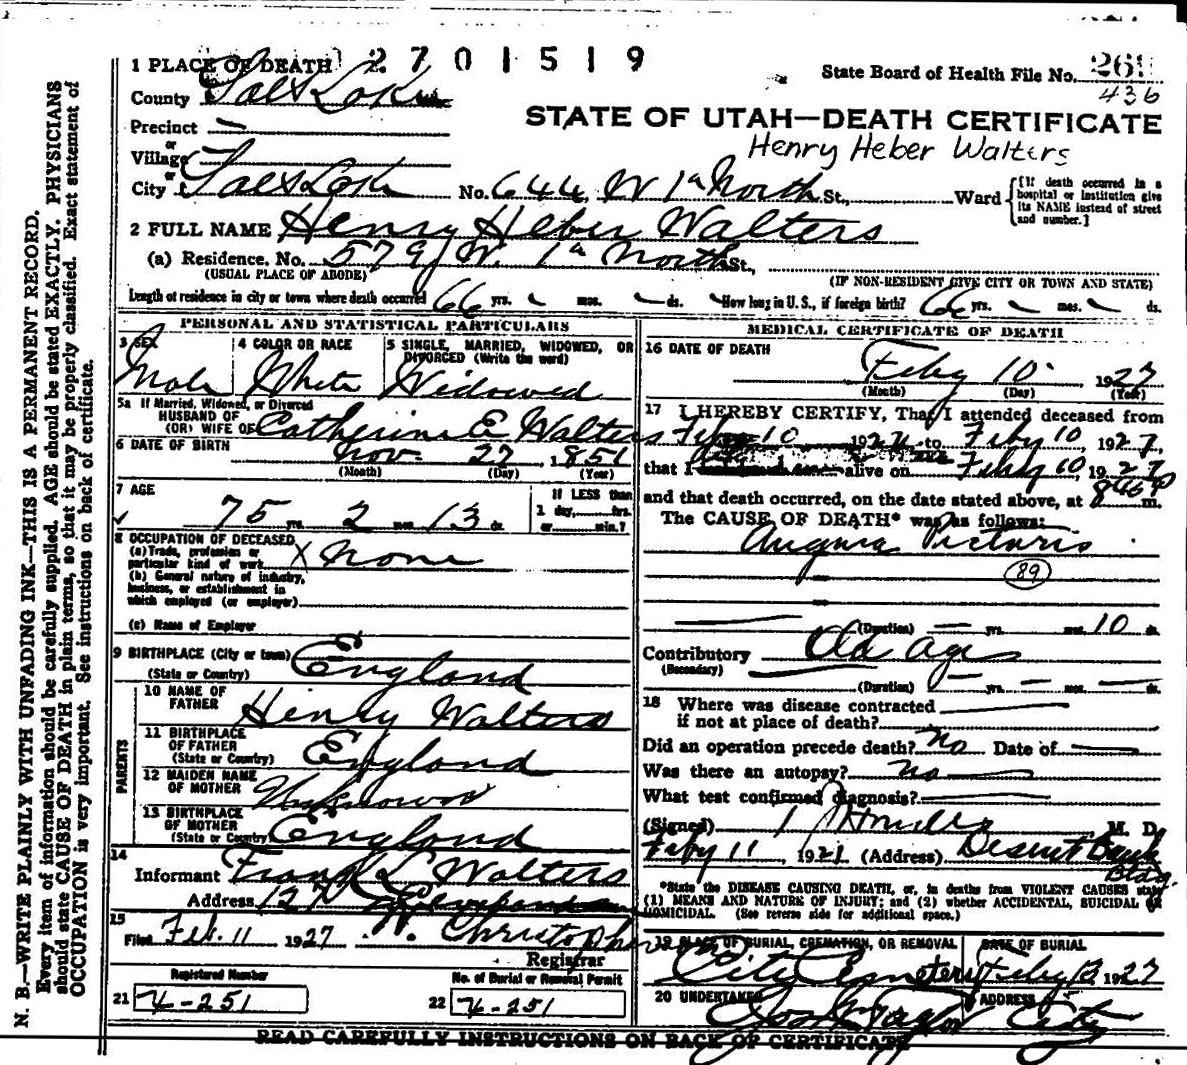 2701519
1 PLACE OF DEATH
State Board of Health File No. 26
436
County Salt Lake
STATE OF UTAH—DEATH CERTIFICATE
Precinct —
Henry Heber Walters
or
Village —
or
City Salt Lake No. 644 W 1st North St., Ward
[If death occurred in a hospital or institution give its NAME instead of street and number.]
2 FULL NAME Henry Heber Walters
(a) Residence. No. 579 W. 1st North St.,
(USUAL PLACE OF ABODE) (IF NON-RESIDENT GIVE CITY OR TOWN AND STATE)
Length of residence in city or town where death occurred 66 yrs. - mos. - ds. How long in U. S., if foreign birth? 66 yrs. - mos. - ds.
PERSONAL AND STATISTICAL PARTICULARS
3 SEX
Male
4 COLOR OR RACE
White
5 SINGLE, MARRIED, WIDOWED, OR DIVORCED (Write the word)
Widowed
5a If Married, Widowed, or Divorced
HUSBAND OF
(OR) WIFE OF Catherine E Walters
6 DATE OF BIRTH Nov. 27 1851
(Month) (Day) (Year)
7 AGE
75 yrs. 2 mos. 13 ds.
If LESS than
1 day, hrs.
or min.?
8 OCCUPATION OF DECEASED
(a) Trade, profession or
particular kind of work X None
(b) General nature of industry,
business, or establishment in
which employed (or employer)
(c) Name of Employer
9 BIRTHPLACE (City or town)
(State or Country) England
PARENTS
10 NAME OF FATHER Henry Walters
11 BIRTHPLACE OF FATHER
(State or Country) England
12 MAIDEN NAME OF MOTHER Unknown
13 BIRTHPLACE OF MOTHER
(State or Country) England
14
Informant Frank L Walters
Address 127
15
Filed Feb. 11 1927 W. Christopherson
Registrar
Registered Number No. of Burial or Removal Permit
21 4-251 22 4-251
MEDICAL CERTIFICATE OF DEATH
16 DATE OF DEATH
Feby 10 1927
(Month) (Day) (Year)
17 I HEREBY CERTIFY, That I attended deceased from
Feby 10 1927 to Feby 10, 1927
that I alive on Feby 10, 1927
and that death occurred, on the date stated above, at 846 P m.
The CAUSE OF DEATH* was as follows:
Angina Pectoris
89
(Duration) — yrs. mos. 10 ds.
Contributory Old Age
(Secondary)
(Duration) — yrs. — mos. — ds.
18 Where was disease contracted
if not at place of death?
Did an operation precede death? No Date of —
Was there an autopsy? No
What test confirmed diagnosis?
(Signed) M. D.
Feby 11, 1927 (Address) Deseret Bank Bldg.
*State the DISEASE CAUSING DEATH, or, in deaths from VIOLENT CAUSES state
(1) MEANS AND NATURE OF INJURY; and (2) whether ACCIDENTAL, SUICIDAL OR
HOMICIDAL. (See reverse side for additional space.)
19 PLACE OF BURIAL, CREMATION, OR REMOVAL DATE OF BURIAL
City Cemetery Feby 13, 1927
20 UNDERTAKER ADDRESS
Jos Wm Taylor City
READ CAREFULLY INSTRUCTIONS ON BACK OF CERTIFICATE
N. B.—WRITE PLAINLY WITH UNFADING INK—THIS IS A PERMANENT RECORD.
Every item of information should be carefully supplied. AGE should be stated EXACTLY. PHYSICIANS
should state CAUSE OF DEATH in plain terms, so that it may be properly classified. Exact statement of
OCCUPATION is very important. See instructions on back of certificate.